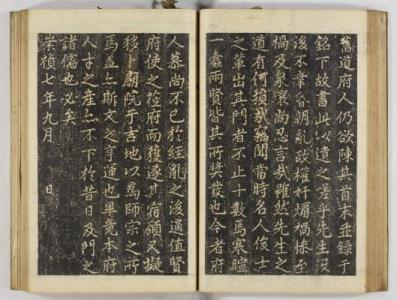 舊道府人仍欲陳其首末並錄于
銘下故書此以遺之嗟乎先生沒
後不幸昏朝亂政權奸煽禍慘至
禍及泉裏尚忍言哉雖然先生之
道有何損哉竊聞當時名人俊士
之輩出其門者不止十數焉寒暄
一蠹兩賢皆其所奬發也今者府
人慕尚不已於經亂之後適值賢
府使之莅府而獲遂其宿願又擬
移卜廟院于吉地以爲師宗之所
焉蓋亦斯文之亨運也畢竟本府
人士之產亦不下於昔日及門之
諸儒也必矣
崇禎七年九月 日